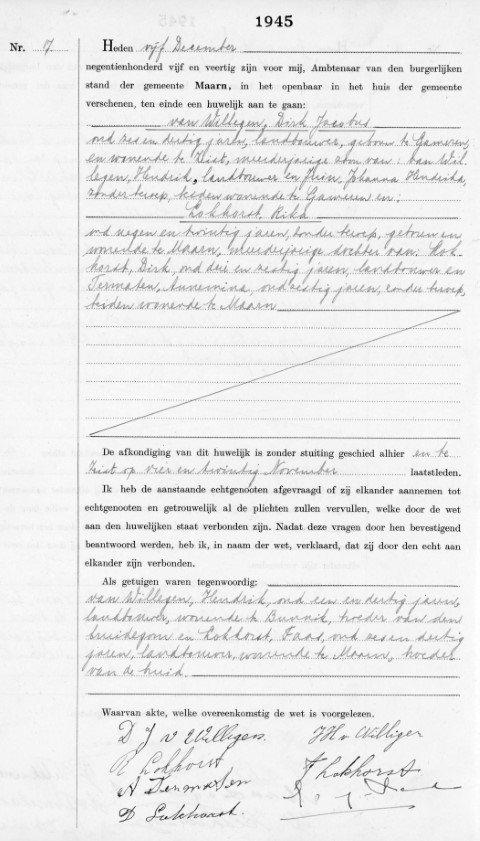 1945
Nr. 7
Heden vijf December
negentienhonderd vijf en veertig zijn voor mij, Ambtenaar van den burgerlijken
stand der gemeente Maarn, in het openbaar in het huis der gemeente
verschenen, ten einde een huwelijk aan te gaan:
van Willegen, Dirk Jacobus
oud zes en dertig jaren, landbouwer, geboren te Gameren,
en wonende te Zeist, meerderjarige zoon van: van Wil-
legen, Hendrik, landbouwer en Juin, Johanna Hendrika,
zonder beroep, beiden wonende te Gameren en:
Lokhorst, Rika
oud negen en twintig jaren, zonder beroep, geboren en
wonende te Maarn, meerderjarige dochter van: Lok-
horst, Dirk, oud drie en zestig jaren, landbouwer en
Termaten, Annemina, oud zestig jaren, zonder beroep,
beiden wonende te Maarn
De afkondiging van dit huwelijk is zonder stuiting geschied alhier en te
Zeist op vier en twintig November laatstleden.
Ik heb de aanstaande echtgenooten afgevraagd of zij elkander aannemen tot
echtgenooten en getrouwelijk al de plichten zullen vervullen, welke door de wet
aan den huwelijken staat verbonden zijn. Nadat deze vragen door hen bevestigend
beantwoord werden, heb ik, in naam der wet, verklaard, dat zij door den echt aan
elkander zijn verbonden.
Als getuigen waren tegenwoordig:
van Willegen, Hendrik, oud een en dertig jaren,
landbouwer, wonende te Bunnik, broeder van den
bruidegom en Lokhorst, Faas, oud zes en dertig
jaren, landbouwer, wonende te Maarn, broeder
van de bruid.
Waarvan akte, welke overeenkomstig de wet is voorgelezen.
D J v Willegen. H v Willigen
R Lokhorst F Lokhorst
A Termaten
D Lokhorst.